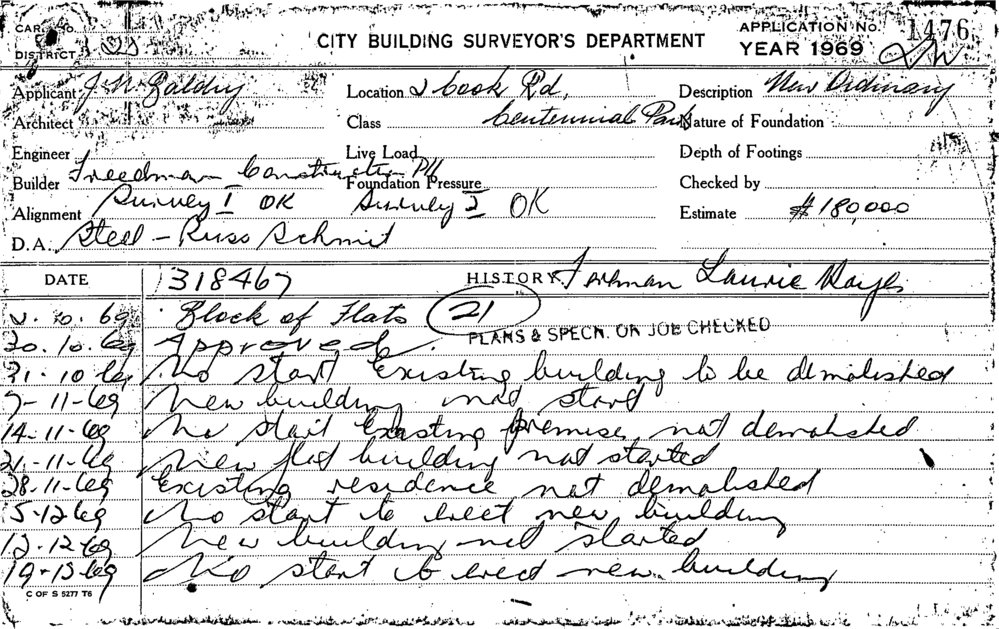 CARD No.
DISTRICT
CITY BUILDING SURVEYOR'S DEPARTMENT
APPLICATION No. 1476
YEAR 1969
Applicant J. W.
Location 2 Cook Rd,
Description New Ordinary
Architect
Class Centennial Park
Nature of Foundation
Engineer
Live Load
Depth of Footings
Builder Freedman Construction P/L
Foundation Pressure
Checked by
Alignment Survey I OK Survey 2 OK
Estimate $180,000
D.A. Steel - Russ Schmit
DATE 318467 HISTORY Forman Laurie Hayes
69 Block of Flats 21
PLANS & SPECN. ON JOB CHECKED
30.10.69 Approved
31-10 69 No start Existing building to be demolished
7-11-69 New building not start
14-11-69 No start Existing premises not demolished
21-11-69 New flat building not started
28-11-69 Existing residence not demolished
5-12 69 No start to erect new building
12-12-69 New building not started
19-12-69 No start to erect new building
C OF S 5277 T6